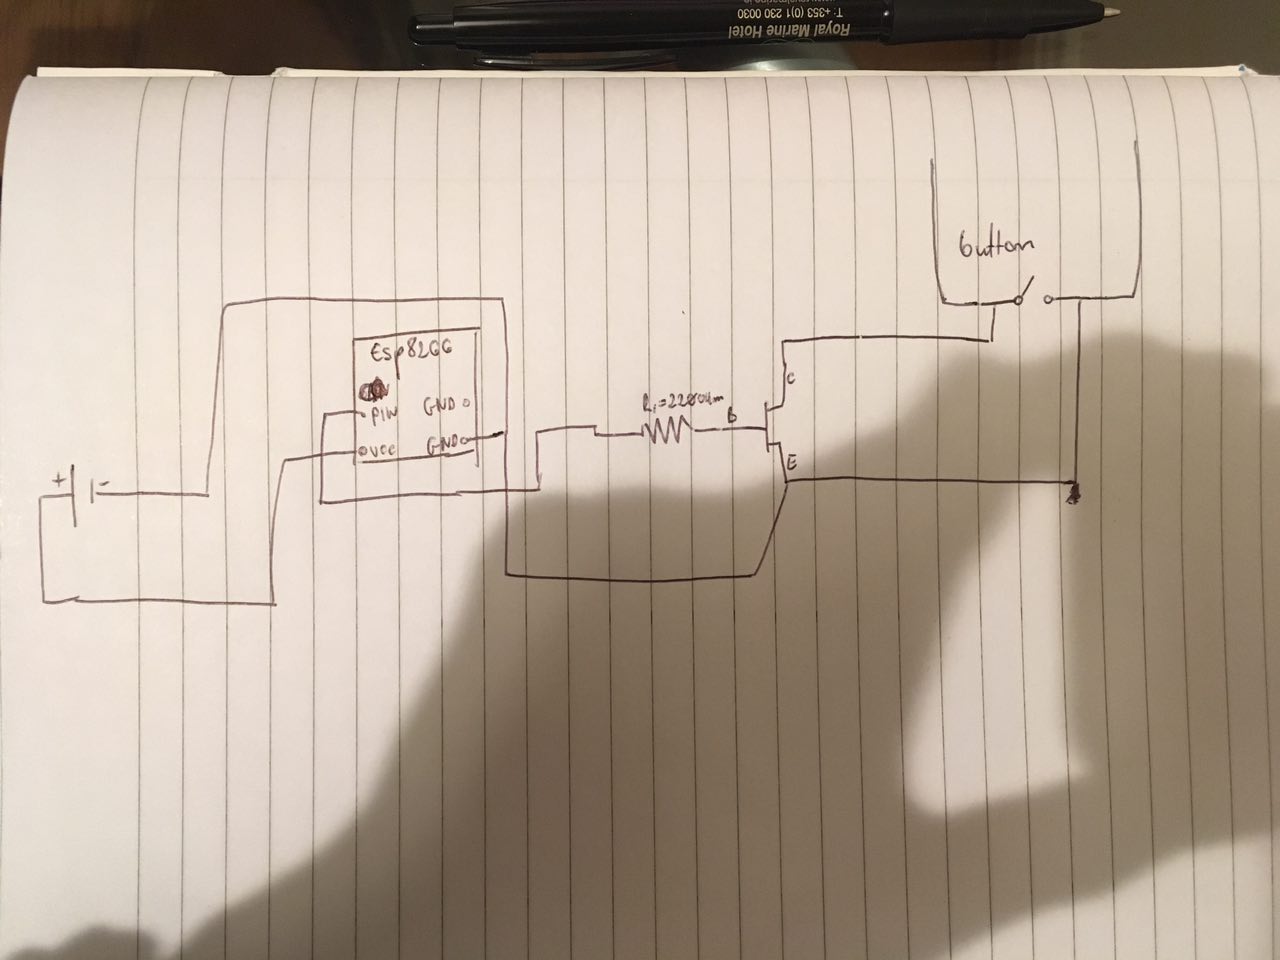 Royal Marine Hotel
T: +353 (0)1 230 0030
button
Esp8266
PIN
GND
VCC
GND
+
-
R1=220Ohm
B
C
E